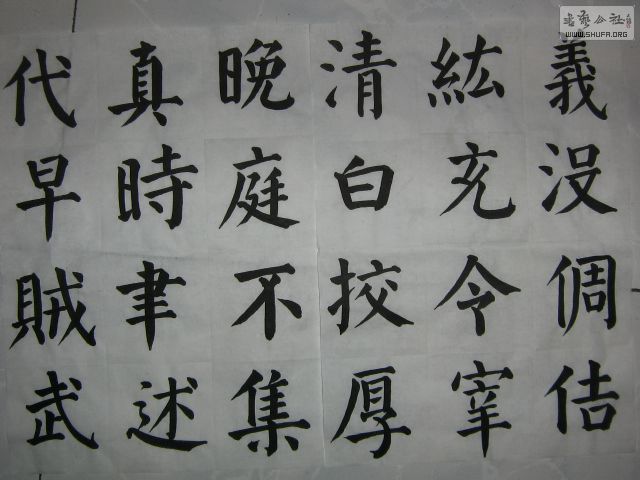 義没倜佶
紘充令宰
清白挍厚
晚庭不集
真時聿述
代早賊武
書藝公社
WWW.SHUFA.ORG